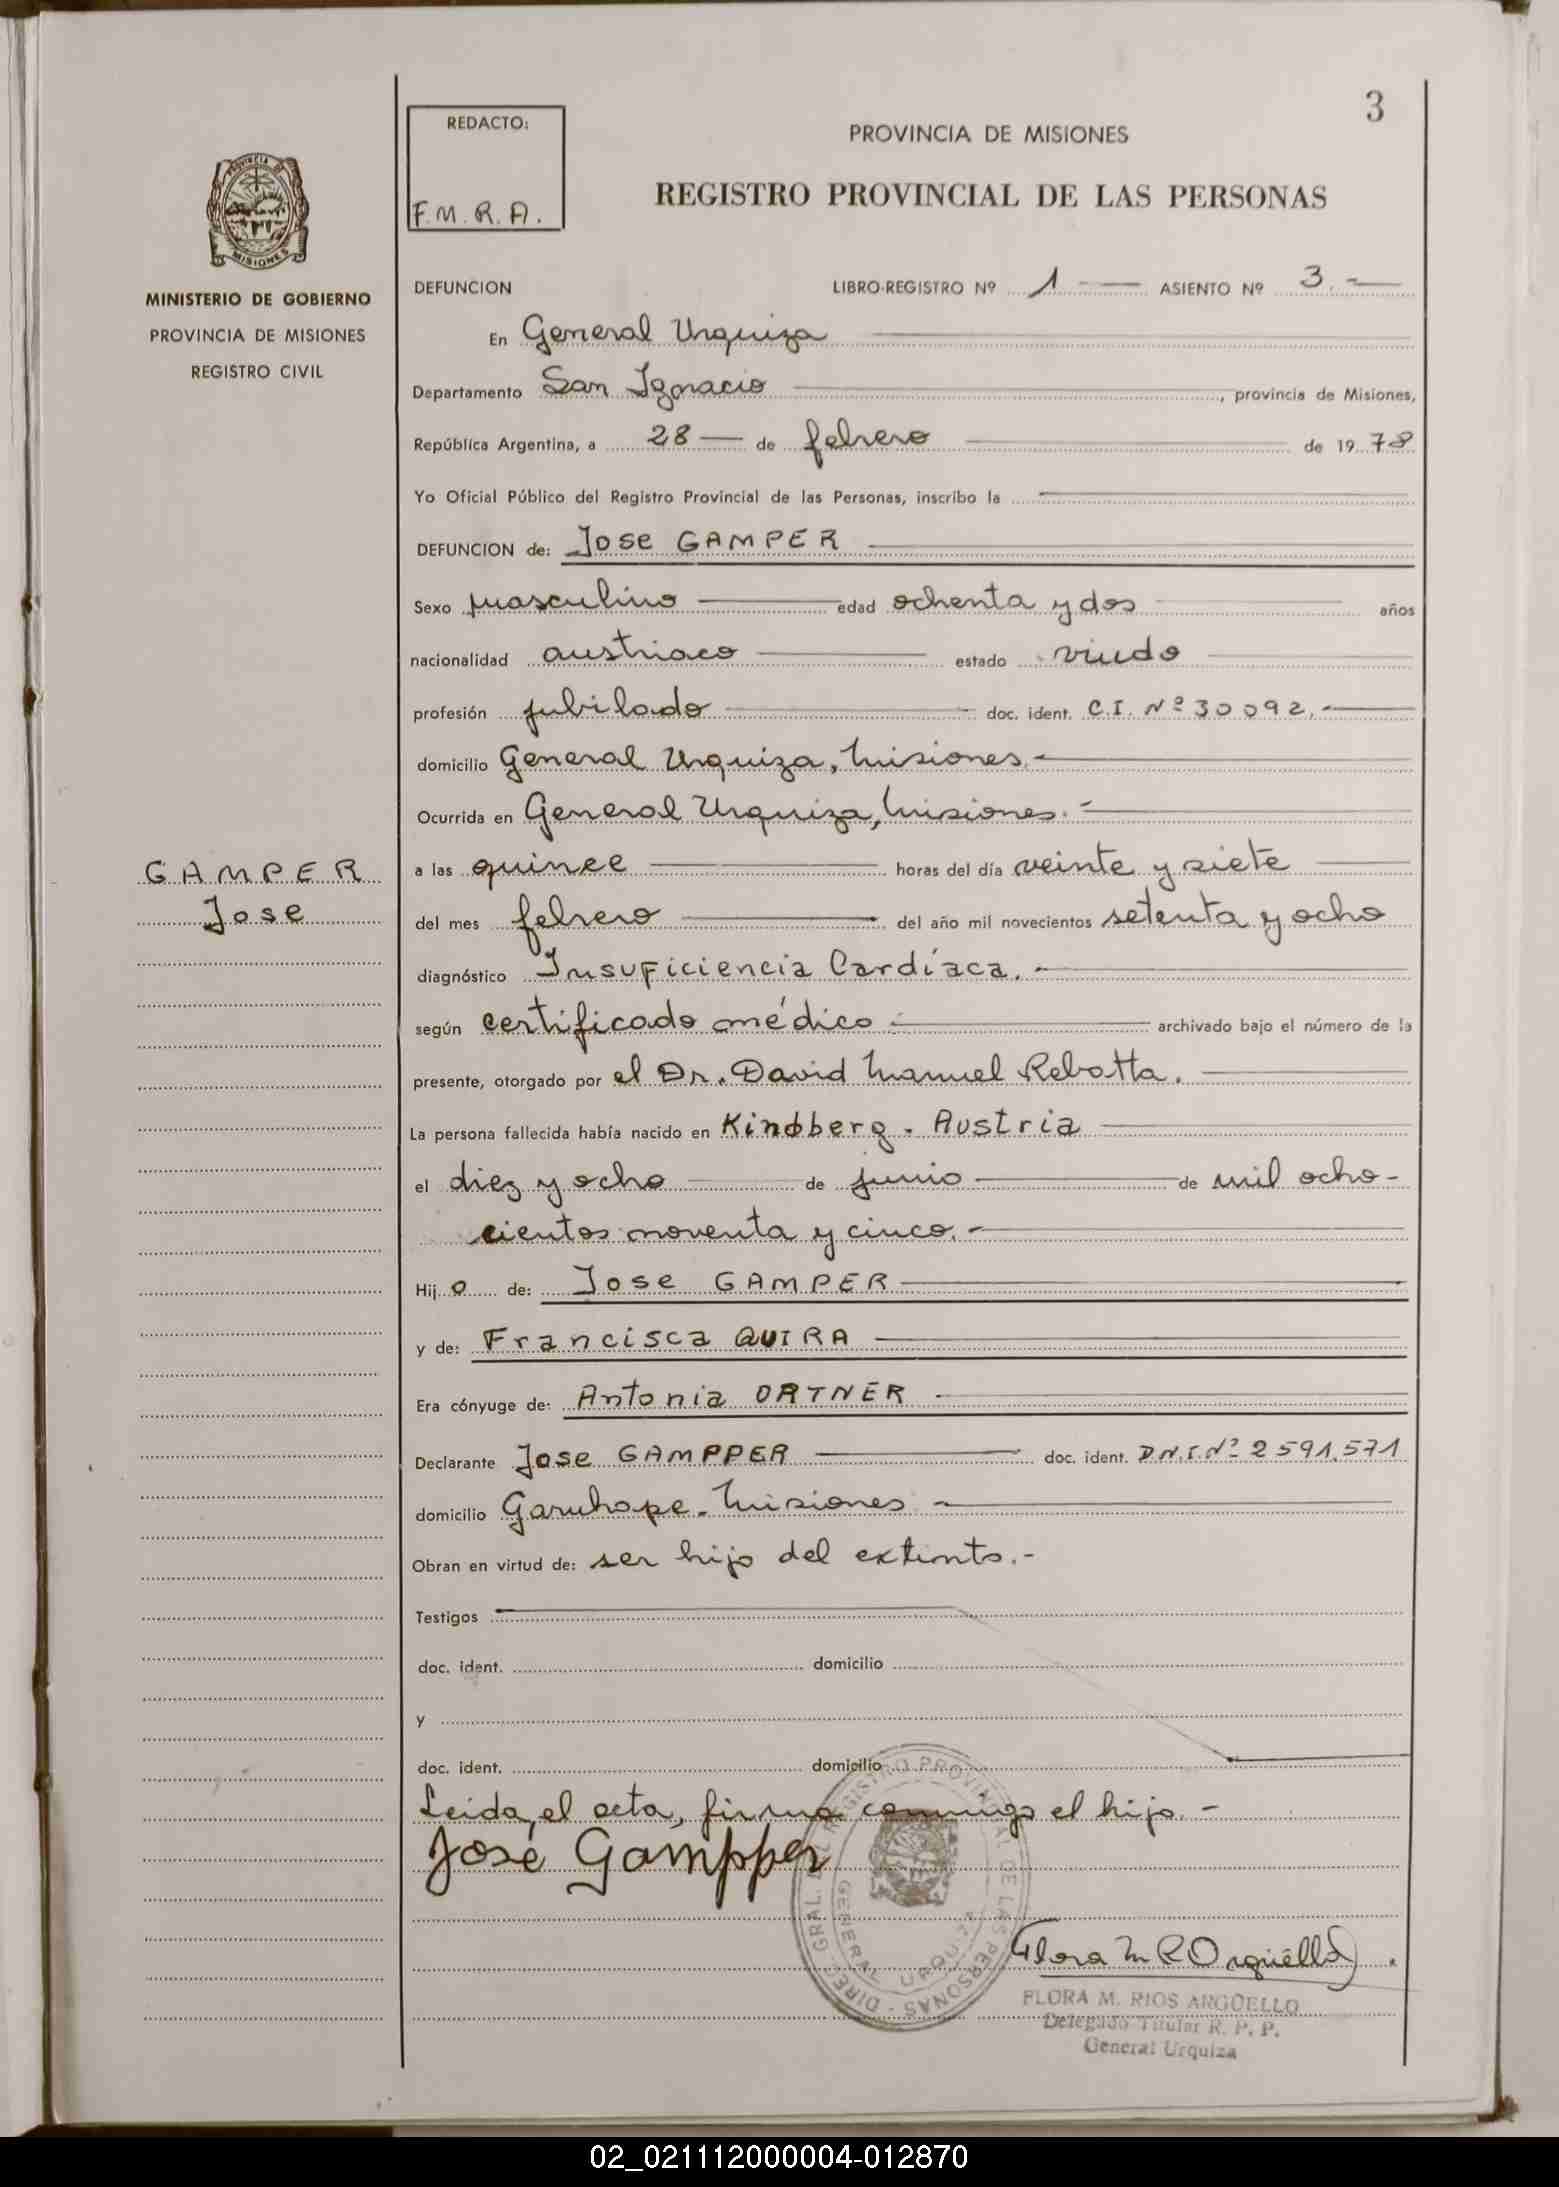 3
REDACTO:
F.M.R.A.
PROVINCIA DE MISIONES
REGISTRO PROVINCIAL DE LAS PERSONAS
MINISTERIO DE GOBIERNO
PROVINCIA DE MISIONES
REGISTRO CIVIL
DEFUNCION LIBRO-REGISTRO Nº 1 ASIENTO Nº 3.-
En General Urquiza
Departamento San Ignacio, provincia de Misiones,
República Argentina, a 28 de febrero de 1978
Yo Oficial Público del Registro Provincial de las Personas, inscribo la
DEFUNCION de: Jose GAMPER
Sexo masculino edad ochenta y dos años
nacionalidad austriaco estado viudo
profesión jubilado doc. ident. C.I. Nº 30092.-
domicilio General Urquiza, Misiones.-
Ocurrida en General Urquiza, Misiones.-
GAMPER
Jose
a las quince horas del día veinte y siete
del mes febrero del año mil novecientos setenta y ocho
diagnóstico Insuficiencia Cardíaca.-
según certificado médico archivado bajo el número de la
presente, otorgado por el Dr. David Manuel Rebotta.
La persona fallecida había nacido en Kindberg. Austria
el diez y ocho de junio de mil ocho-
cientos noventa y cinco.-
Hijo de: Jose GAMPER
y de: Francisca QUIRA
Era cónyuge de: Antonia ORTNER
Declarante Jose GAMPPER doc. ident. D.N.I.Nº 2591.571
domicilio Garuhape. Misiones -
Obran en virtud de: ser hijo del extinto.-
Testigos
doc. ident. domicilio
y
doc. ident. domicilio
Leida el acta, firma conmigo el hijo.-
José Gampper
DIREC. GRAL. DEL REGISTRO PROVINCIAL DE LAS PERSONAS -
GENERAL URQUIZA
Flora M R Argüello
FLORA M. RIOS ARGÜELLO
Delegado Titular R. P. P.
General Urquiza
02_021112000004-012870